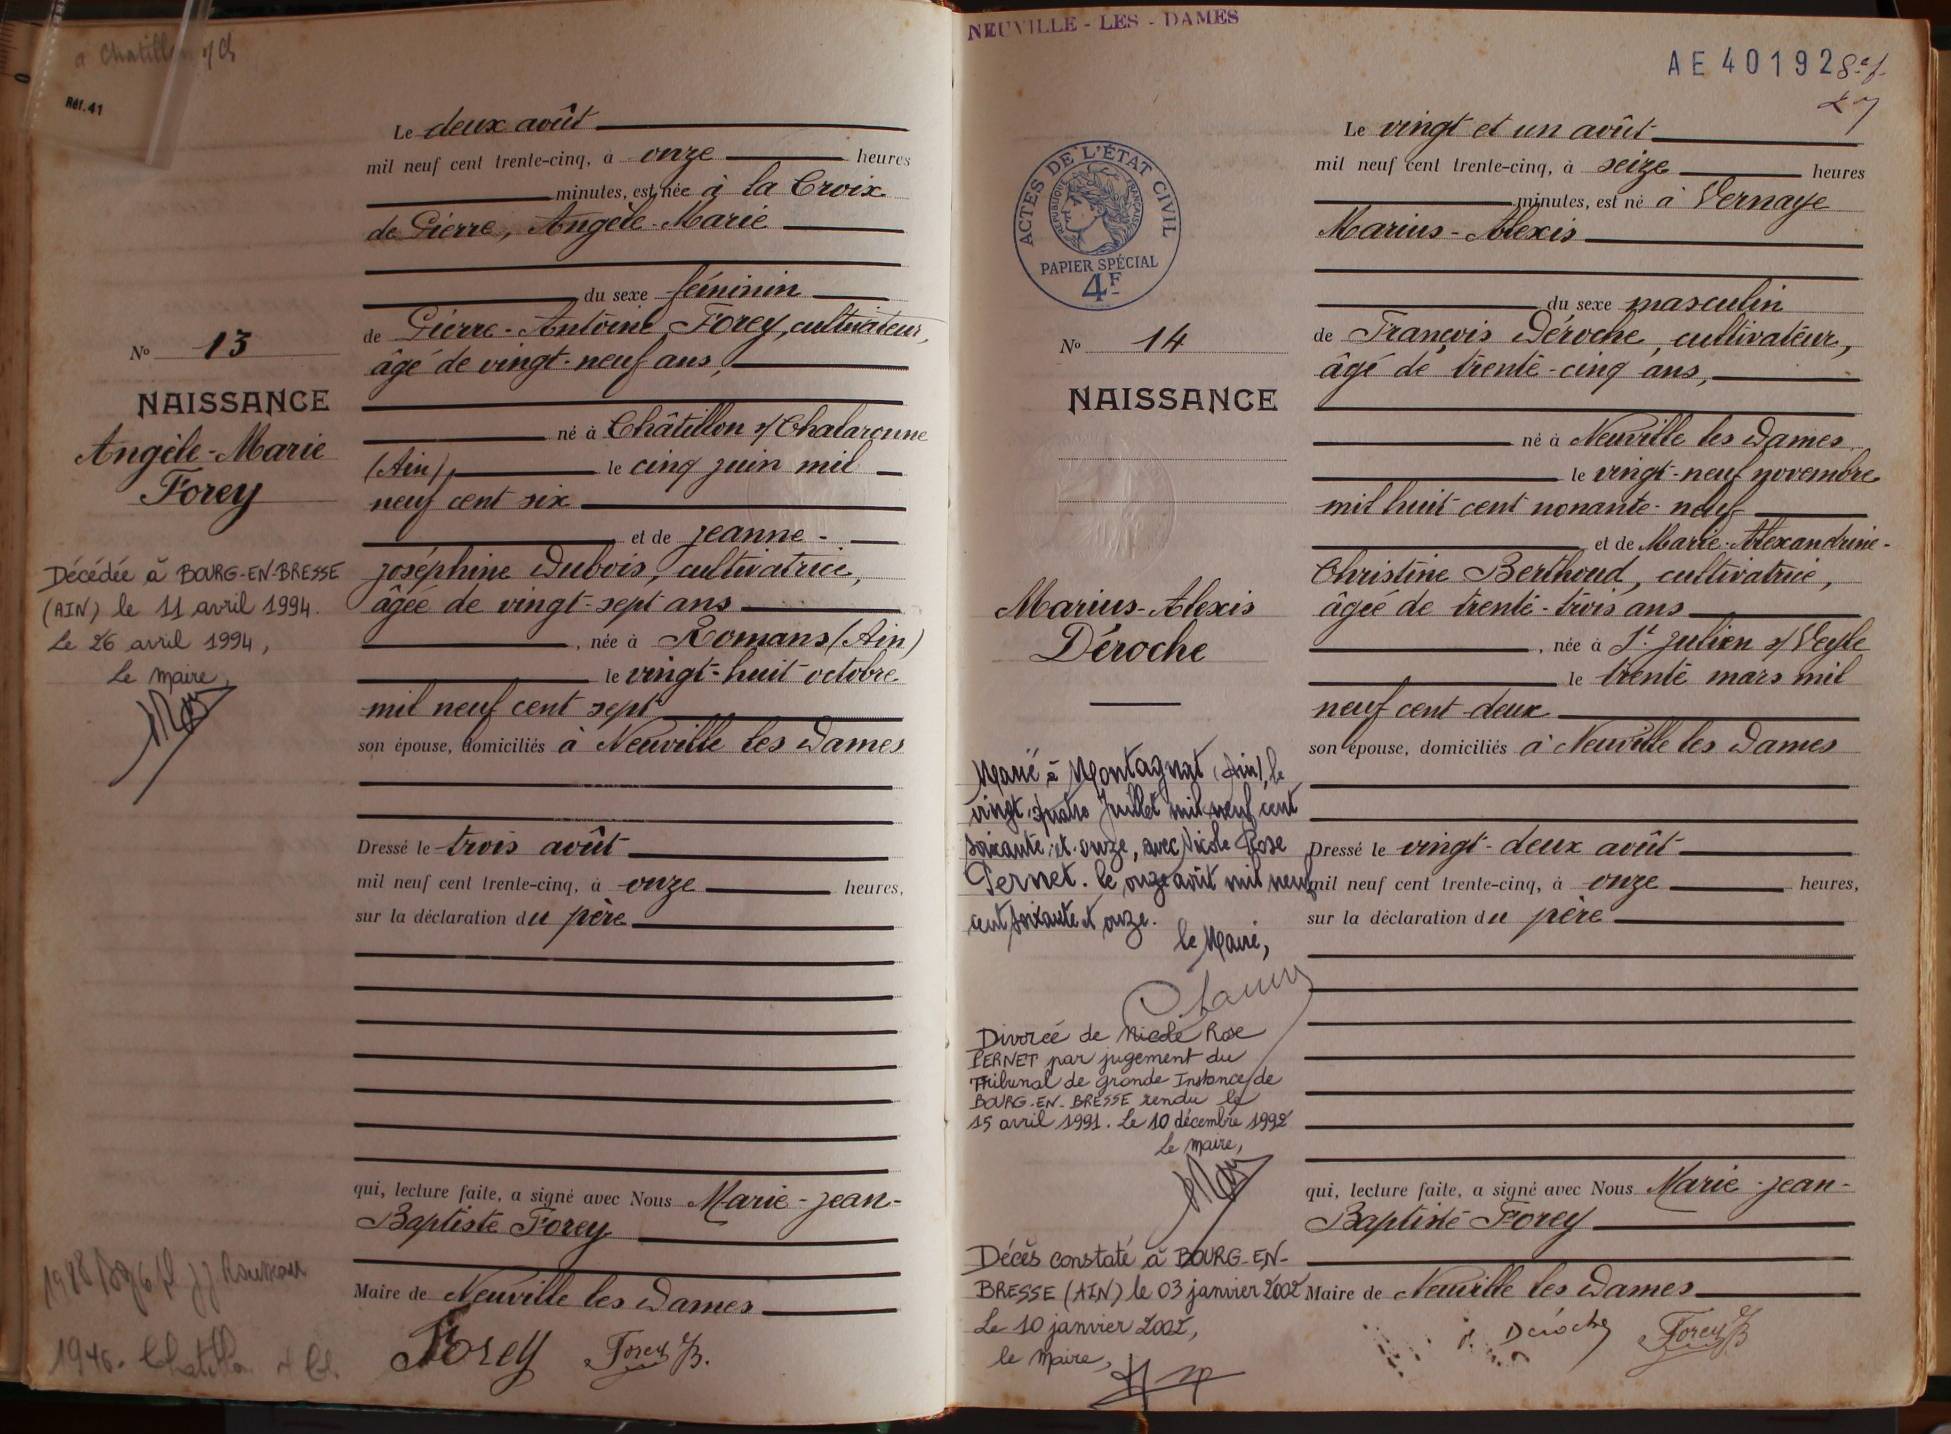 a Chatillon s/ Ch
Réf. 41
Le deux août
mil neuf cent trente-cinq, à onze heures
minutes, est née à la Croix
de Pierre, Angèle-Marie
du sexe féminin
de Pierre-Antoine Forey, cultivateur,
âgé de vingt-neuf ans,
né à Châtillon s/Chalaronne
(Ain), le cinq juin mil
neuf cent six
et de jeanne-
joséphine Dubois, cultivatrice,
âgée de vingt-sept ans
, née à Romans (Ain)
le vingt-huit octobre
mil neuf cent sept
son épouse, domiciliés à Neuville les Dames
Dressé le trois août
mil neuf cent trente-cinq, à onze heures,
sur la déclaration du père
qui, lecture faite, a signé avec Nous Marie-jean-
Baptiste Forey
Maire de Neuville les Dames
Forey Forey JB.
No 13
NAISSANCE
Angèle-Marie
Forey
Décédée à BOURG-EN-BRESSE
(AIN) le 11 avril 1994.
Le 26 avril 1994,
Le Maire,
1946. Chatillon s/ Ch
NEUVILLE - LES - DAMES
AE 401928
ACTES DE L'ÉTAT CIVIL
RÉPUBLIQUE FRANÇAISE
PAPIER SPÉCIAL
4F
No 14
NAISSANCE
Marius-Alexis
Déroche
Marié à Montagnat (Ain), le
vingt-quatre Juillet mil neuf cent
soixante et onze, avec Nicole Rose
Pernet. Le onze août mil neuf
cent soixante et onze.
le Maire,
Divorcé de Nicole Rose
PERNET par jugement du
Tribunal de grande Instance de
BOURG-EN-BRESSE rendu le
15 avril 1991. Le 10 décembre 1992
Le Maire,
Décès constaté à BOURG-EN-
BRESSE (AIN) le 03 janvier 2002
Le 10 janvier 2002,
le Maire,
Le vingt et un août
mil neuf cent trente-cinq, à seize heures
minutes, est né à Vernaye
Marius-Alexis
du sexe masculin
de François Déroche, cultivateur,
âgé de trente-cinq ans,
né à Neuville les Dames
le vingt-neuf novembre
mil huit cent nonante-neuf
et de Marie-Alexandrine-
Christine Berthoud, cultivatrice,
âgée de trente-trois ans
, née à St julien s/Veyle
le trente mars mil
neuf cent deux
son épouse, domiciliés à Neuville les Dames
Dressé le vingt-deux août
mil neuf cent trente-cinq, à onze heures,
sur la déclaration du père
qui, lecture faite, a signé avec Nous Marie-jean-
Baptiste Forey
Maire de Neuville les Dames
Déroche Forey JB